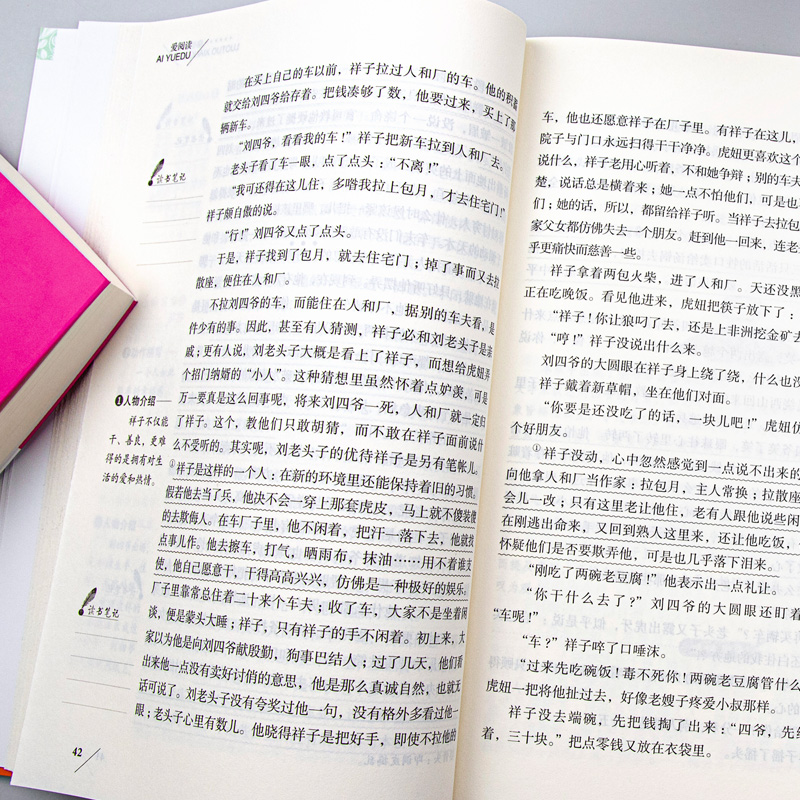 爱阅读
AI YUEDU
在买上自己的车以前，祥子拉过人和厂的车。他的积蓄
就交给刘四爷给存着。把钱凑够了数，他要过来，买上了那
辆新车。
“刘四爷，看看我的车！”祥子把新车拉到人和厂去。
老头子看了车一眼，点了点头：“不离！”
“我可还得在这儿住，多咯我拉上包月，才去住宅门！”
祥子颇自傲的说。
“行！”刘四爷又点了点头。
于是，祥子找到了包月，就去住宅门；掉了事而又去拉
散座，便住在人和厂。
不拉刘四爷的车，而能住在人和厂，据别的车夫看，是
件少有的事。因此，甚至有人猜测，祥子必和刘老头子是亲
戚；更有人说，刘老头子大概是看上了祥子，而想给虎妞弄
个招门纳婿的“小人”。这种猜想里虽然怀着点妒羡，可是
万一要真是这么回事呢，将来刘四爷一死，人和厂就一定归
了祥子。这个，教他们只敢胡猜，而不敢在祥子面前说什
么不受听的。其实呢，刘老头子的优待祥子是另有笔帐儿。
①祥子是这样的一个人：在新的环境里还能保持着旧的习惯。
假若他去当了兵，他决不会一穿上那套虎皮，马上就不傻装傻
的去欺侮人。在车厂子里，他不闲着，把汗一落下去，他就找
点事儿作。他去擦车，打气，晒雨布，抹油……用不着谁支
使，他自己愿意干，干得高高兴兴，仿佛是一种极好的娱乐。
厂子里靠常总住着二十来个车夫；收了车，大家不是坐着闲
谈，便是蒙头大睡；祥子，只有祥子的手不闲着。初上来，大
家以为他是向刘四爷献殷勤，狗事巴结人；过了几天，他们看
出来他一点没有卖好讨俏的意思，他是那么真诚自然，也就无
话可说了。刘老头子没有夸奖过他一句，没有格外多看过他一
眼；老头子心里有数儿。他晓得祥子是把好手，即使不拉他的
读书笔记
❶人物介绍
祥子不仅能
干、善良，更难
得的是拥有对生
活的爱和热情。
读书笔记
42
车，他也还愿意祥子在厂子里。有祥子在这儿，
院子与门口永远扫得干干净净。虎妞更喜欢这个
说什么，祥子老用心听着，不和她争辩；别的车夫
楚，说话总是横着来；她一点不怕他们，可是也不
们；她的话，所以，都留给祥子听。当祥子去拉包
家父女都仿佛失去一个朋友。赶到他一回来，连老
乎更痛快而慈善一些。
祥子拿着两包火柴，进了人和厂。天还没黑
正在吃晚饭。看见他进来，虎妞把筷子放下了：
“祥子！你让狼叼了去，还是上非洲挖金矿去
“哼！”祥子没说出什么来。
刘四爷的大圆眼在祥子身上绕了绕，什么也没
祥子戴着新草帽，坐在他们对面。
“你要是还没吃了的话，一块儿吧！”虎妞仿
个好朋友。
①祥子没动，心中忽然感觉到一点说不出来的
向他拿人和厂当作家：拉包月，主人常换；拉散座
会儿一改；只有这里老让他住，老有人跟他说些闲
在刚逃出命来，又回到熟人这里来，还让他吃饭，
怀疑他们是否要欺弄他，可是也几乎落下泪来。
“刚吃了两碗老豆腐！”他表示出一点礼让。
“你干什么去了？”刘四爷的大圆眼还盯着
“车呢！”
“车？”祥子啐了口唾沫。
“过来先吃碗饭！毒不死你！两碗老豆腐管什么
虎妞一把将他扯过去，好像老嫂子疼爱小叔那样。
祥子没去端碗，先把钱掏了出来：“四爷，先给
着，三十块。”把点零钱又放在衣袋里。